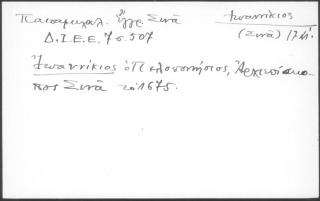 Παπαμιχαλ. Ἔγγρ. Σινᾶ
Δ.Ι.Ε.Ε. 7 σ. 507
Ἰωαννίκιος
(Σινᾶ) 17 αἰ.
Ἰωαννίκιος ὁ Πελοποννήσιος, Ἀρχιεπίσκο-
πος Σινᾶ τῷ 1675.